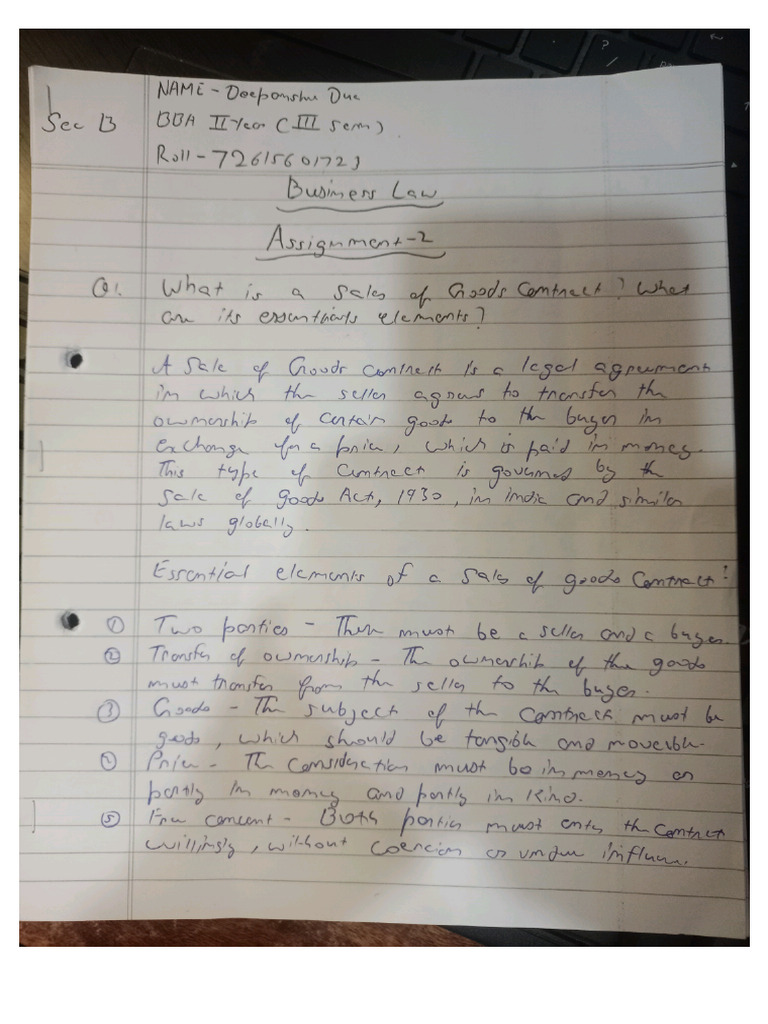 NAME - Deepanshu Dua
Sec B BBA II Year (III Sem)
Roll - 72615601723
Business Law
Assignment-2
Q1. What is a Sales of Goods Contract? What
are its essentials elements?
A Sale of Goods contract is a legal agreement
in which the seller agrees to transfer the
ownership of certain goods to the buyer in
exchange for a price, which is paid in money.
This type of Contract is governed by the
Sale of goods Act, 1930, in india and similar
laws globally.
Essential elements of a Sales of goods Contract:
① Two parties - There must be a seller and a buyer.
② Transfer of ownership - The ownership of the goods
must transfer from the seller to the buyer.
③ Goods - The subject of the Contract must be
goods, which should be tangible and moveable.
Price - The Consideration must be in money or
partly in money and partly in kind.
⑤ Free concent - Both parties must enter the contract
willingly, without coercion or undue influence.